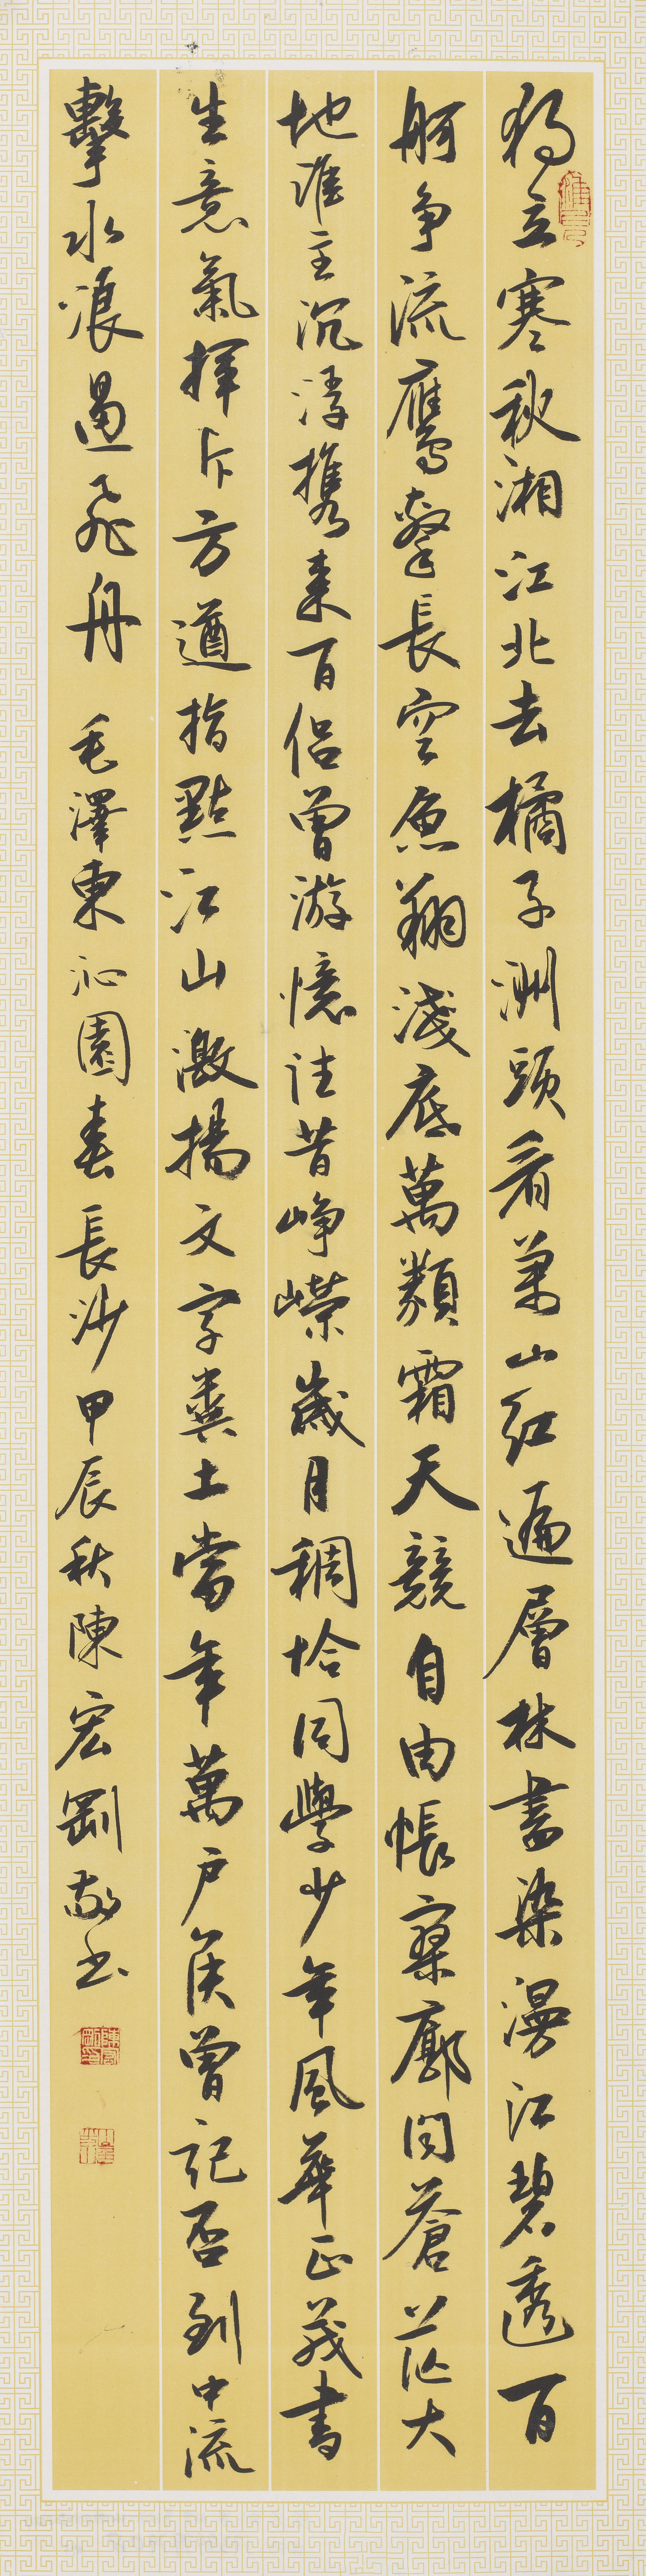 獨立寒秋湘江北去橘子洲頭看萬山紅遍層林盡染漫江碧透百
舸争流鷹擊長空魚翔淺底萬類霜天競自由悵寥廓問蒼茫大
地誰主沉浮携来百侣曾游憶往昔峥嶸歲月稠恰同學少年風華正茂書
生意氣揮斥方遒指點江山激揚文字糞土當年萬户侯曾記否到中流
擊水浪遏飛舟 毛澤東沁園春長沙甲辰秋陳宏剛敬书